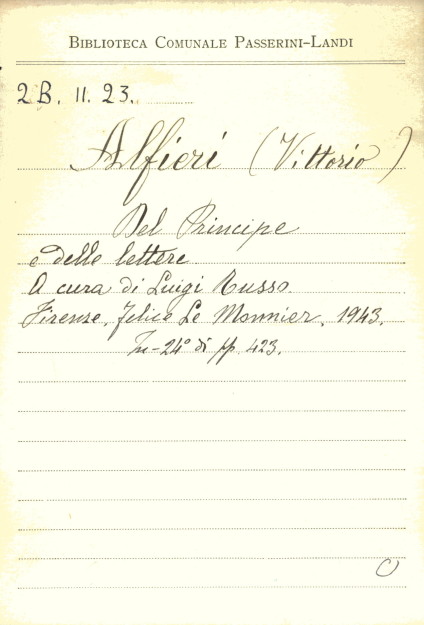 BIBLIOTECA COMUNALE PASSERINI-LANDI
2B. II. 23.
Alfieri (Vittorio)
Del Principe
e delle lettere
A cura di Luigi Russo.
Firenze, Felice Le Monnier, 1943.
In-24° di pp. 423.